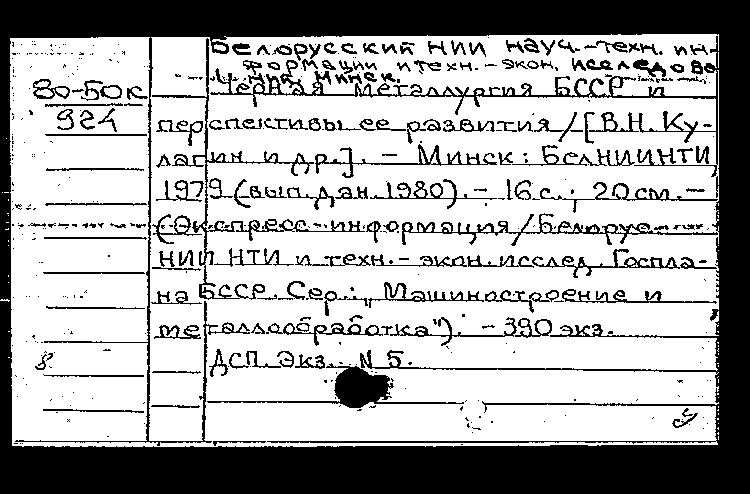 Белорусский НИИ науч.-техн. ин-
формации и техн.-экон. исследова-
ний, Минск.
80-50к Черная металлургия БССР и
924 перспективы ее развития / [В.Н. Ку-
лагин и др.]. - Минск: БелНИИНТИ,
1979 (вып. дан. 1980). - 16 с.; 20 см. -
(Экспресс-информация / Белорус.
НИИ НТИ и техн.-экон. исслед. Госпла-
на БССР. Сер.: „Машиностроение и
металлообработка"). - 390 экз.
8 ДСП. Экз. N 5.